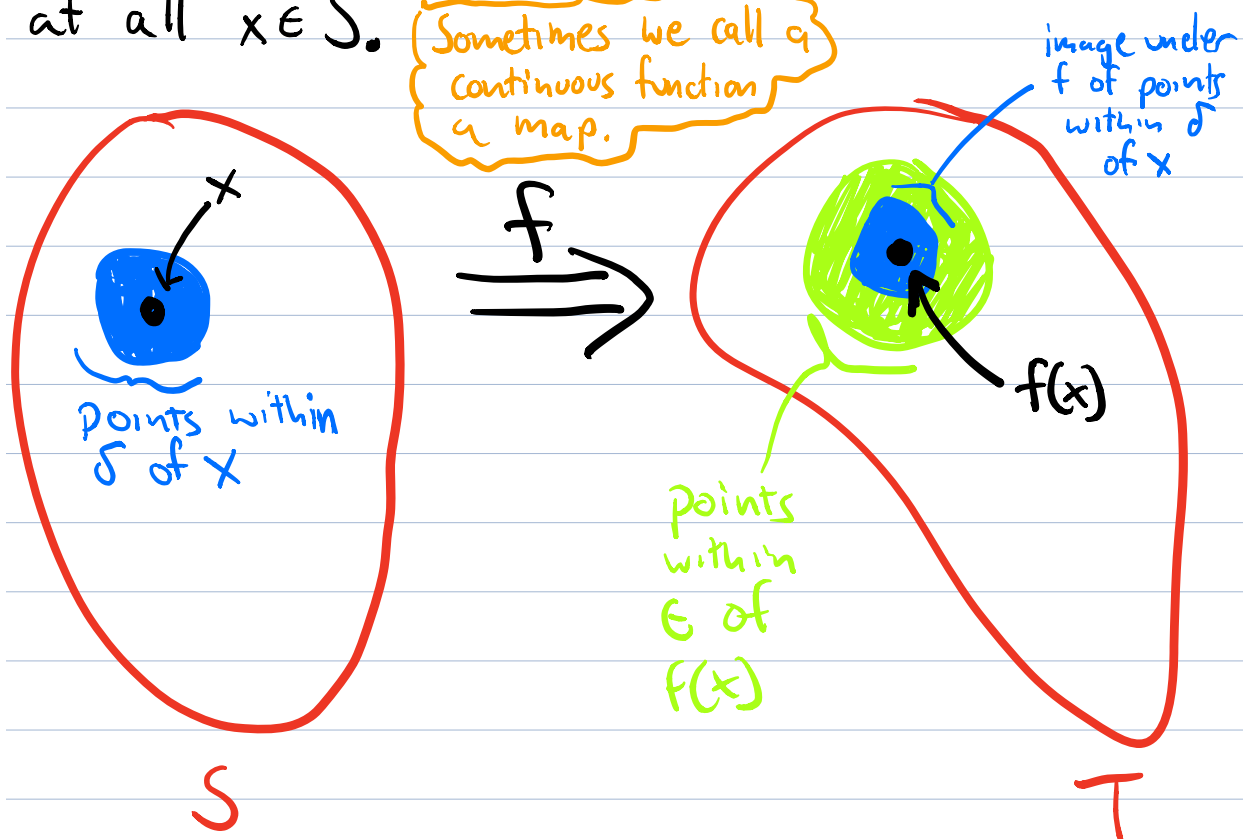 at all x ∈ S.
Sometimes we call a
continuous function
a map.
image under
f of points
within δ
of x
x
f
f(x)
points within
δ of x
points
within
ϵ of
f(x)
S
T